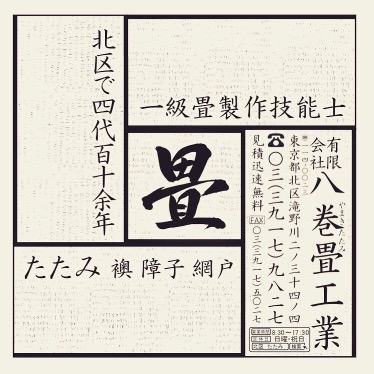 北区で四代百十余年
一級畳製作技能士
畳
たたみ 襖 障子 網戸
有限会社 八巻畳工業
やまきたたみ
〒一一四-〇〇二三
東京都北区滝野川二ノ三十四ノ四
☎〇三(三九一七)九八二七
見積迅速無料 FAX 〇三(三九一七)五〇二七
営業時間 8:30〜17:30
定休日 日曜・祝日
北区 たたみ 検索